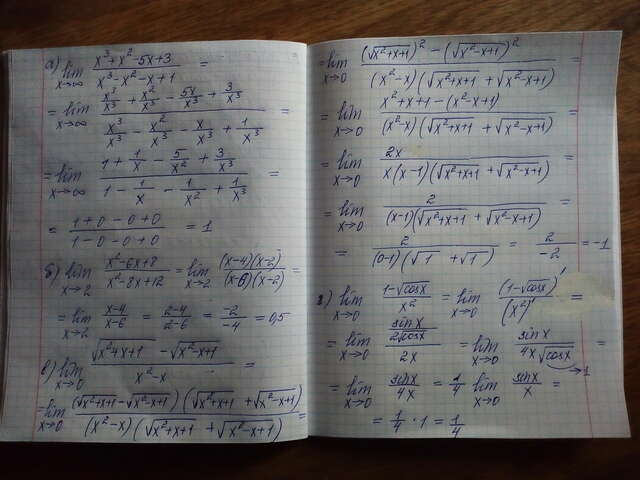 а) lim x→∞ (x³+x²-5x+3)/(x³-x²-x+1) =
= lim x→∞ (x³/x³ + x²/x³ - 5x/x³ + 3/x³)/(x³/x³ - x²/x³ - x/x³ + 1/x³) =
= lim x→∞ (1 + 1/x - 5/x² + 3/x³)/(1 - 1/x - 1/x² + 1/x³) =
= (1+0-0+0)/(1-0-0+0) = 1
б) lim x→2 (x²-6x+8)/(x²-8x+12) = lim x→2 (x-4)(x-2)/(x-6)(x-2) =
= lim x→2 (x-4)/(x-6) = (2-4)/(2-6) = -2/-4 = 0,5
в) lim x→0 (√(x²+x+1) - √(x²-x+1))/(x²-x) =
= lim x→0 (√(x²+x+1) - √(x²-x+1))(√(x²+x+1) + √(x²-x+1))/(x²-x)(√(x²+x+1) + √(x²-x+1)) =
= lim x→0 ((√(x²+x+1))² - (√(x²-x+1))²)/(x²-x)(√(x²+x+1) + √(x²-x+1)) =
= lim x→0 (x²+x+1-(x²-x+1))/(x²-x)(√(x²+x+1) + √(x²-x+1)) =
= lim x→0 2x/x(x-1)(√(x²+x+1) + √(x²-x+1)) =
= lim x→0 2/(x-1)(√(x²+x+1) + √(x²-x+1)) =
= 2/(0-1)(√1 + √1) = 2/-2 = -1
г) lim x→0 (1-√cosx)/x² = lim x→0 (1-√cosx)'/(x²)' =
= lim x→0 (sinx/2√cosx)/2x = lim x→0 sinx/4x√cosx →1
= lim x→0 sinx/4x = 1/4 lim x→0 sinx/x =
= 1/4 · 1 = 1/4